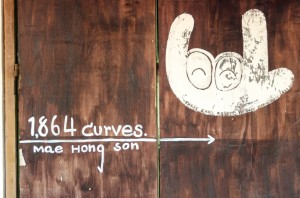 1,864 curves.
mae Hong son